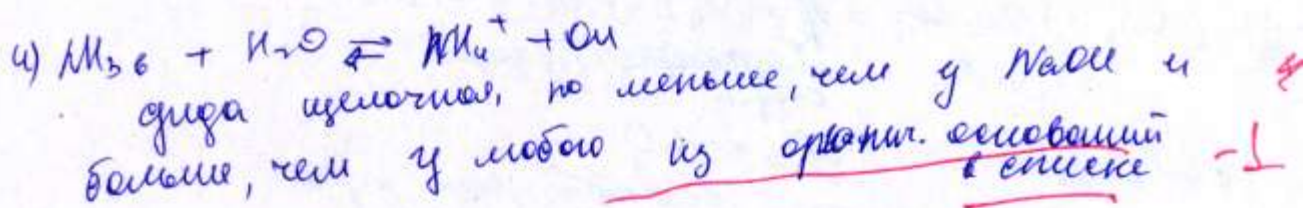 4) NH3 + H2O ⇄ NH4+ + OH
среда щелочная, но меньше, чем у NaOH и
больше, чем у любого из органич. оснований
в списке -1